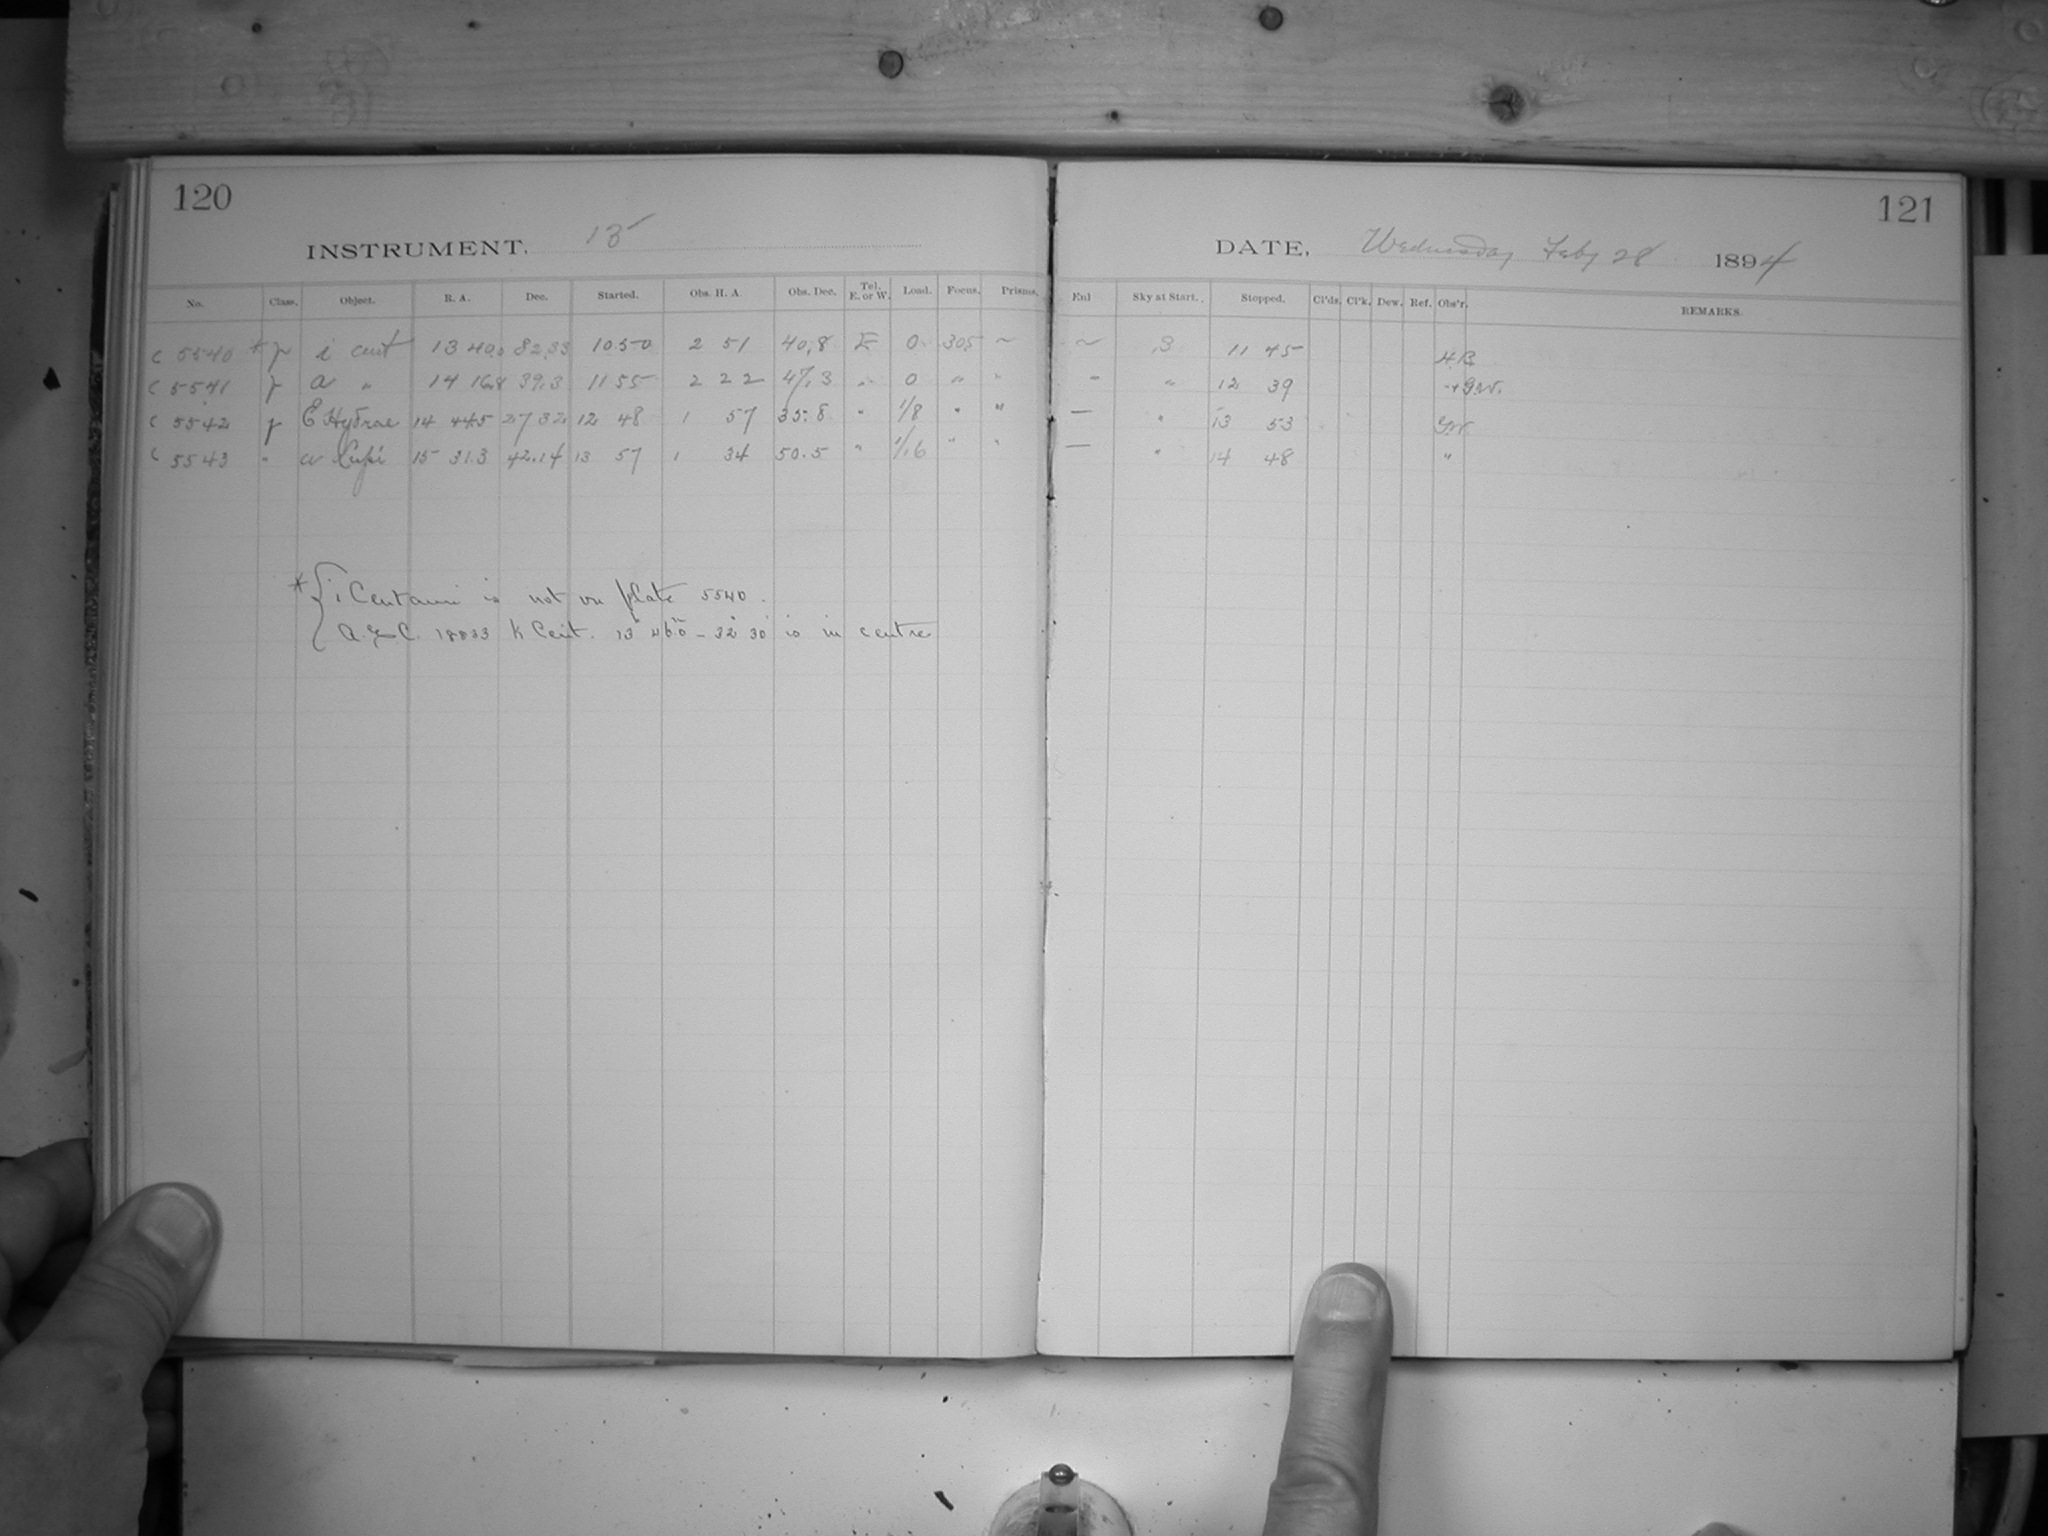 120
121
INSTRUMENT, 13
DATE, Wednesday Feby 28 1894
No. Class. Object. R. A. Dec. Started. Obs. H. A. Obs. Dec. Tel. E. or W. Load. Focus. Prisms. Enl Sky at Start. Stopped. Cl'ds. Cl'k. Dew. Ref. Obs'r. REMARKS.
C 5540 * i cent 13 40.0 32.33 10 50 2 51 40.8 E 0 305 ~ ~ .3 11 45 H.B.
C 5541 a " 14 16.8 39.3 11 55 2 22 47.3 " 0 " " - " 12 39 + G.W.
C 5542 E Hydrae 14 44.5 27 32 12 48 1 57 35.8 " 1/8 " " — " 13 53 G.W.
C 5543 " a Lupi 15 31.3 42.14 13 57 1 34 50.5 " 1/16 " " — " 14 48 "
* { i Centauri is not on plate 5540.
A.G.C. 18833 k Cent. 13h 46.0m - 32° 30' is in centre